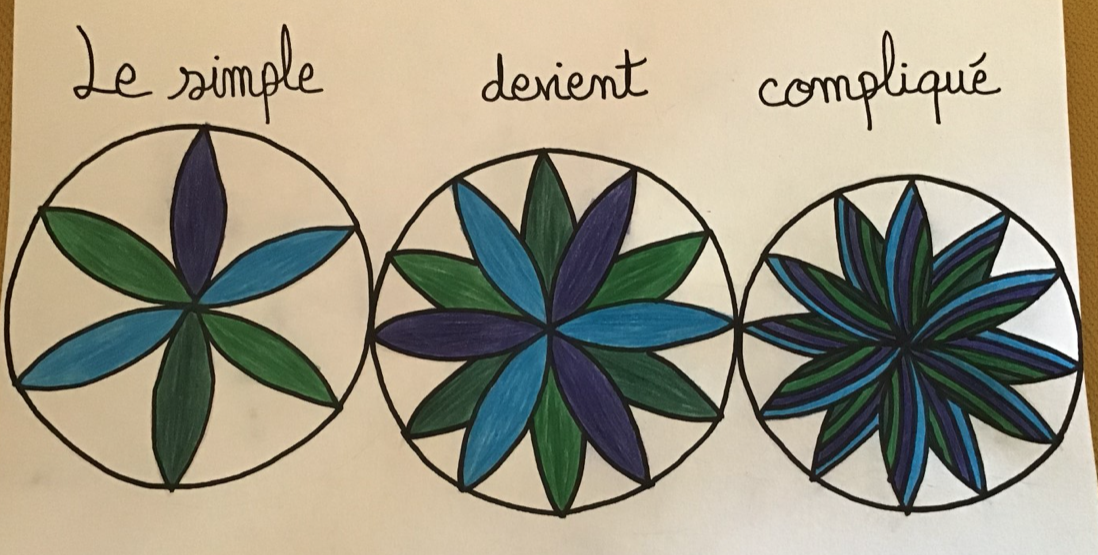 Le simple devient compliqué